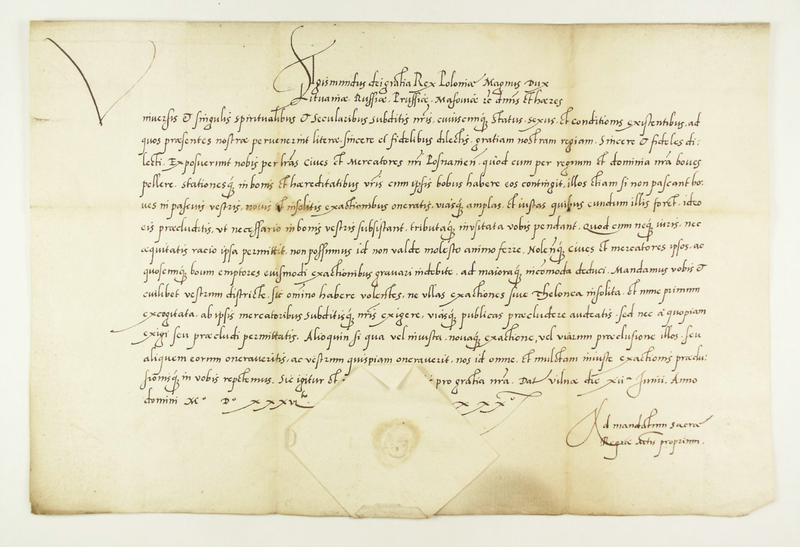 Sigismundus dei gratia Rex Poloniæ Magnus Dux
Lituaniæ Russiæ, Prussiæ, Masoviæ &c dnus et hæres
niversis & singulis spiritualibus & Secularibus subditis nris, cuiuscunq status, sexus, et conditionis existentibus, ad
quos præsentes nostræ pervenerint literæ sincere et fidelibus dilectis, gratiam nostram regiam. Sincere & fideles di:
lecti. Exposuerunt nobis per lras Cives et Mercatores nri Posnanien, quod cum per regnum et dominia nra boves
pellere, stationesq in bonis et hæreditatibus vris cum ipsis bobus habere eos contingit, illos etiam si non pascant bo:
ves in pascuis vestris, novis et insolitis exactionibus oneratis, viasq amplas, et iustas quibus eundum illis foret, ideo
eis præcluditis, ut necessario in bonis vestris subsistant, tributaq inusitata vobis pendant. Quod cum neq iuris, nec
æquitatis racio ipsa permittit, non possumus id non valde molesto animo ferre. Nolenq cives et mercatores ipsos, ac
quoscunq boum emptores eiusmodi exactionibus gravari indebite, ad maioraq incomoda deduci. Mandamus vobis &
cuilibet vestrum districte, sic omnino habere volentes, ne ullas exactiones sive thelonea insolita, et nunc primum
excogitata, ab ipsis mercatoribus subditisq nris exigere, viasq publicas præcludere audeatis, sed nec a quopiam
exigi seu præcludi permittatis. Alioquin si qua vel iniusta, novaq exactione, vel viarum præclusione illos, seu
aliquem eorum oneraveritis, ac vestrum quispiam oneraverit, nos id omne, et mulctam iniuste exactionis præclu:
sionisq in vobis repetemus. Sic igitur et pro gratia nra. Dat Vilnæ die xii Junii, Anno
domini M° D° XXXVI XXX°
Ad mandatum sacræ
Regiæ proprium.